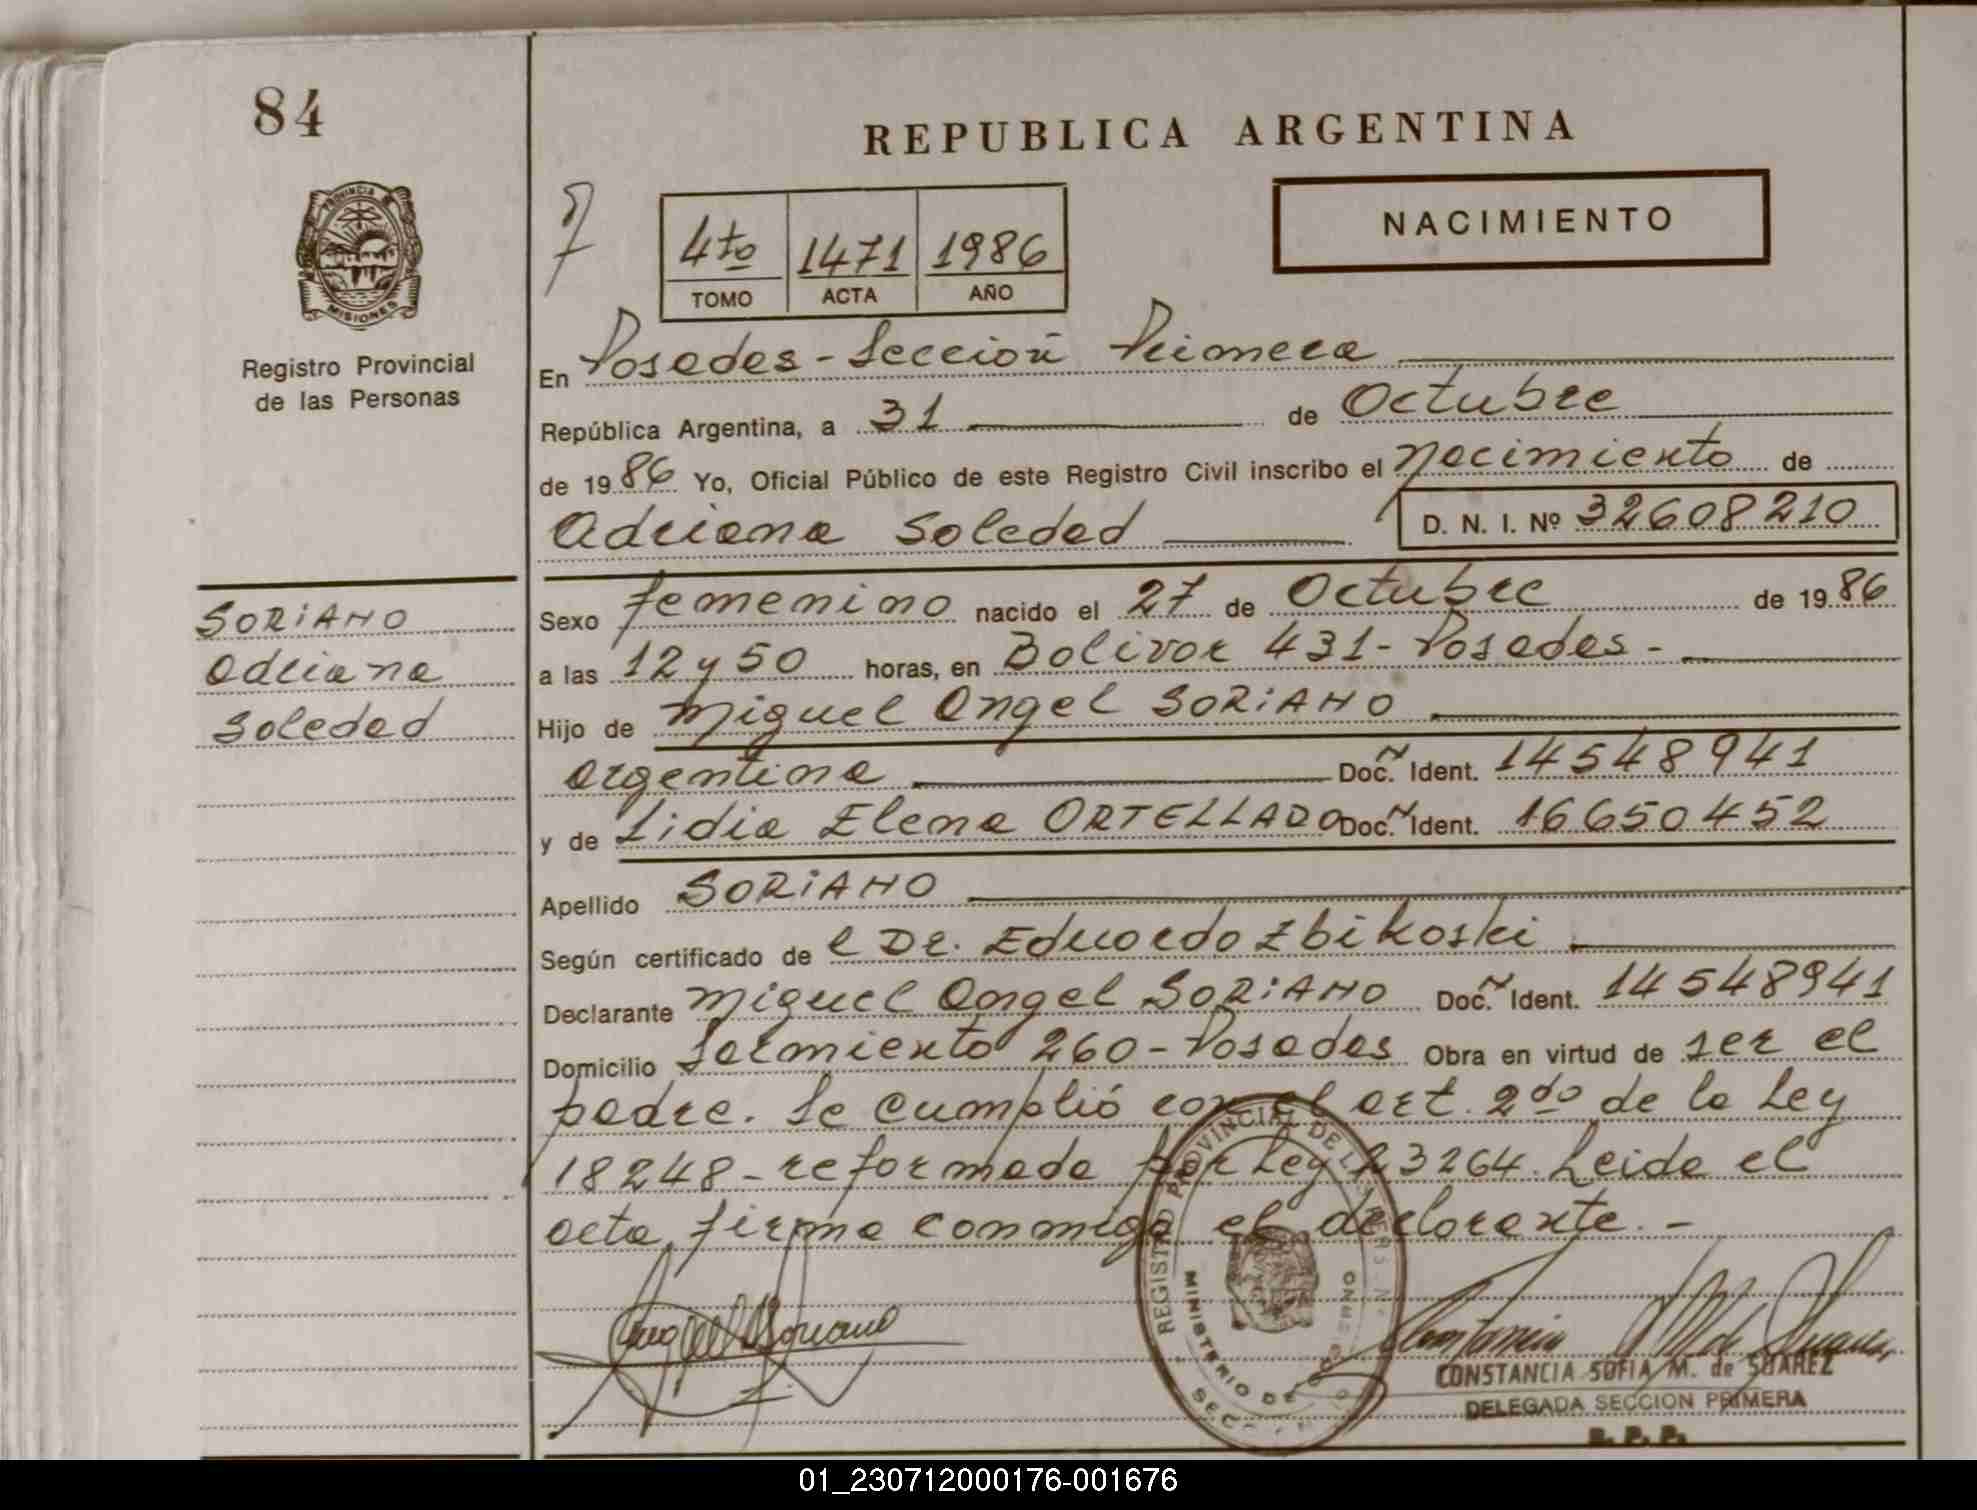 84
REPUBLICA ARGENTINA
PROVINCIA DE
MISIONES
4to 1471 1986
TOMO ACTA AÑO
NACIMIENTO
Registro Provincial
de las Personas
En Posadas - Sección Primera
República Argentina, a 31 de Octubre
de 1986 Yo, Oficial Público de este Registro Civil inscribo el nacimiento de
Adriana Soledad D. N. I. Nº 32608210
SORIANO
Adriana
Soledad
Sexo femenino nacido el 27 de Octubre de 1986
a las 12 y 50 horas, en Bolivar 431 - Posadas -
Hijo de Miguel Angel SORIANO
argentina Doc. Ident. 14548941
y de Lidia Elena ORTELLADO Doc. Ident. 16650452
Apellido SORIANO
Según certificado de l Dr. Eduardo Zbikoski
Declarante Miguel Angel SORIANO Doc. Ident. 14548941
Domicilio Sarmiento 260 - Posadas Obra en virtud de ser el
padre. Se cumplió con el art. 2do de la Ley
18248 - reformada por Ley 23264. Leida el
acta, firma conmigo el declarante. -
REGISTRO PROVINCIAL DE LAS PERSONAS
MINISTERIO DE GOBIERNO
CONSTANCIA SOFIA M. de SUAREZ
DELEGADA SECCION PRIMERA
R. P. P.
01_230712000176-001676